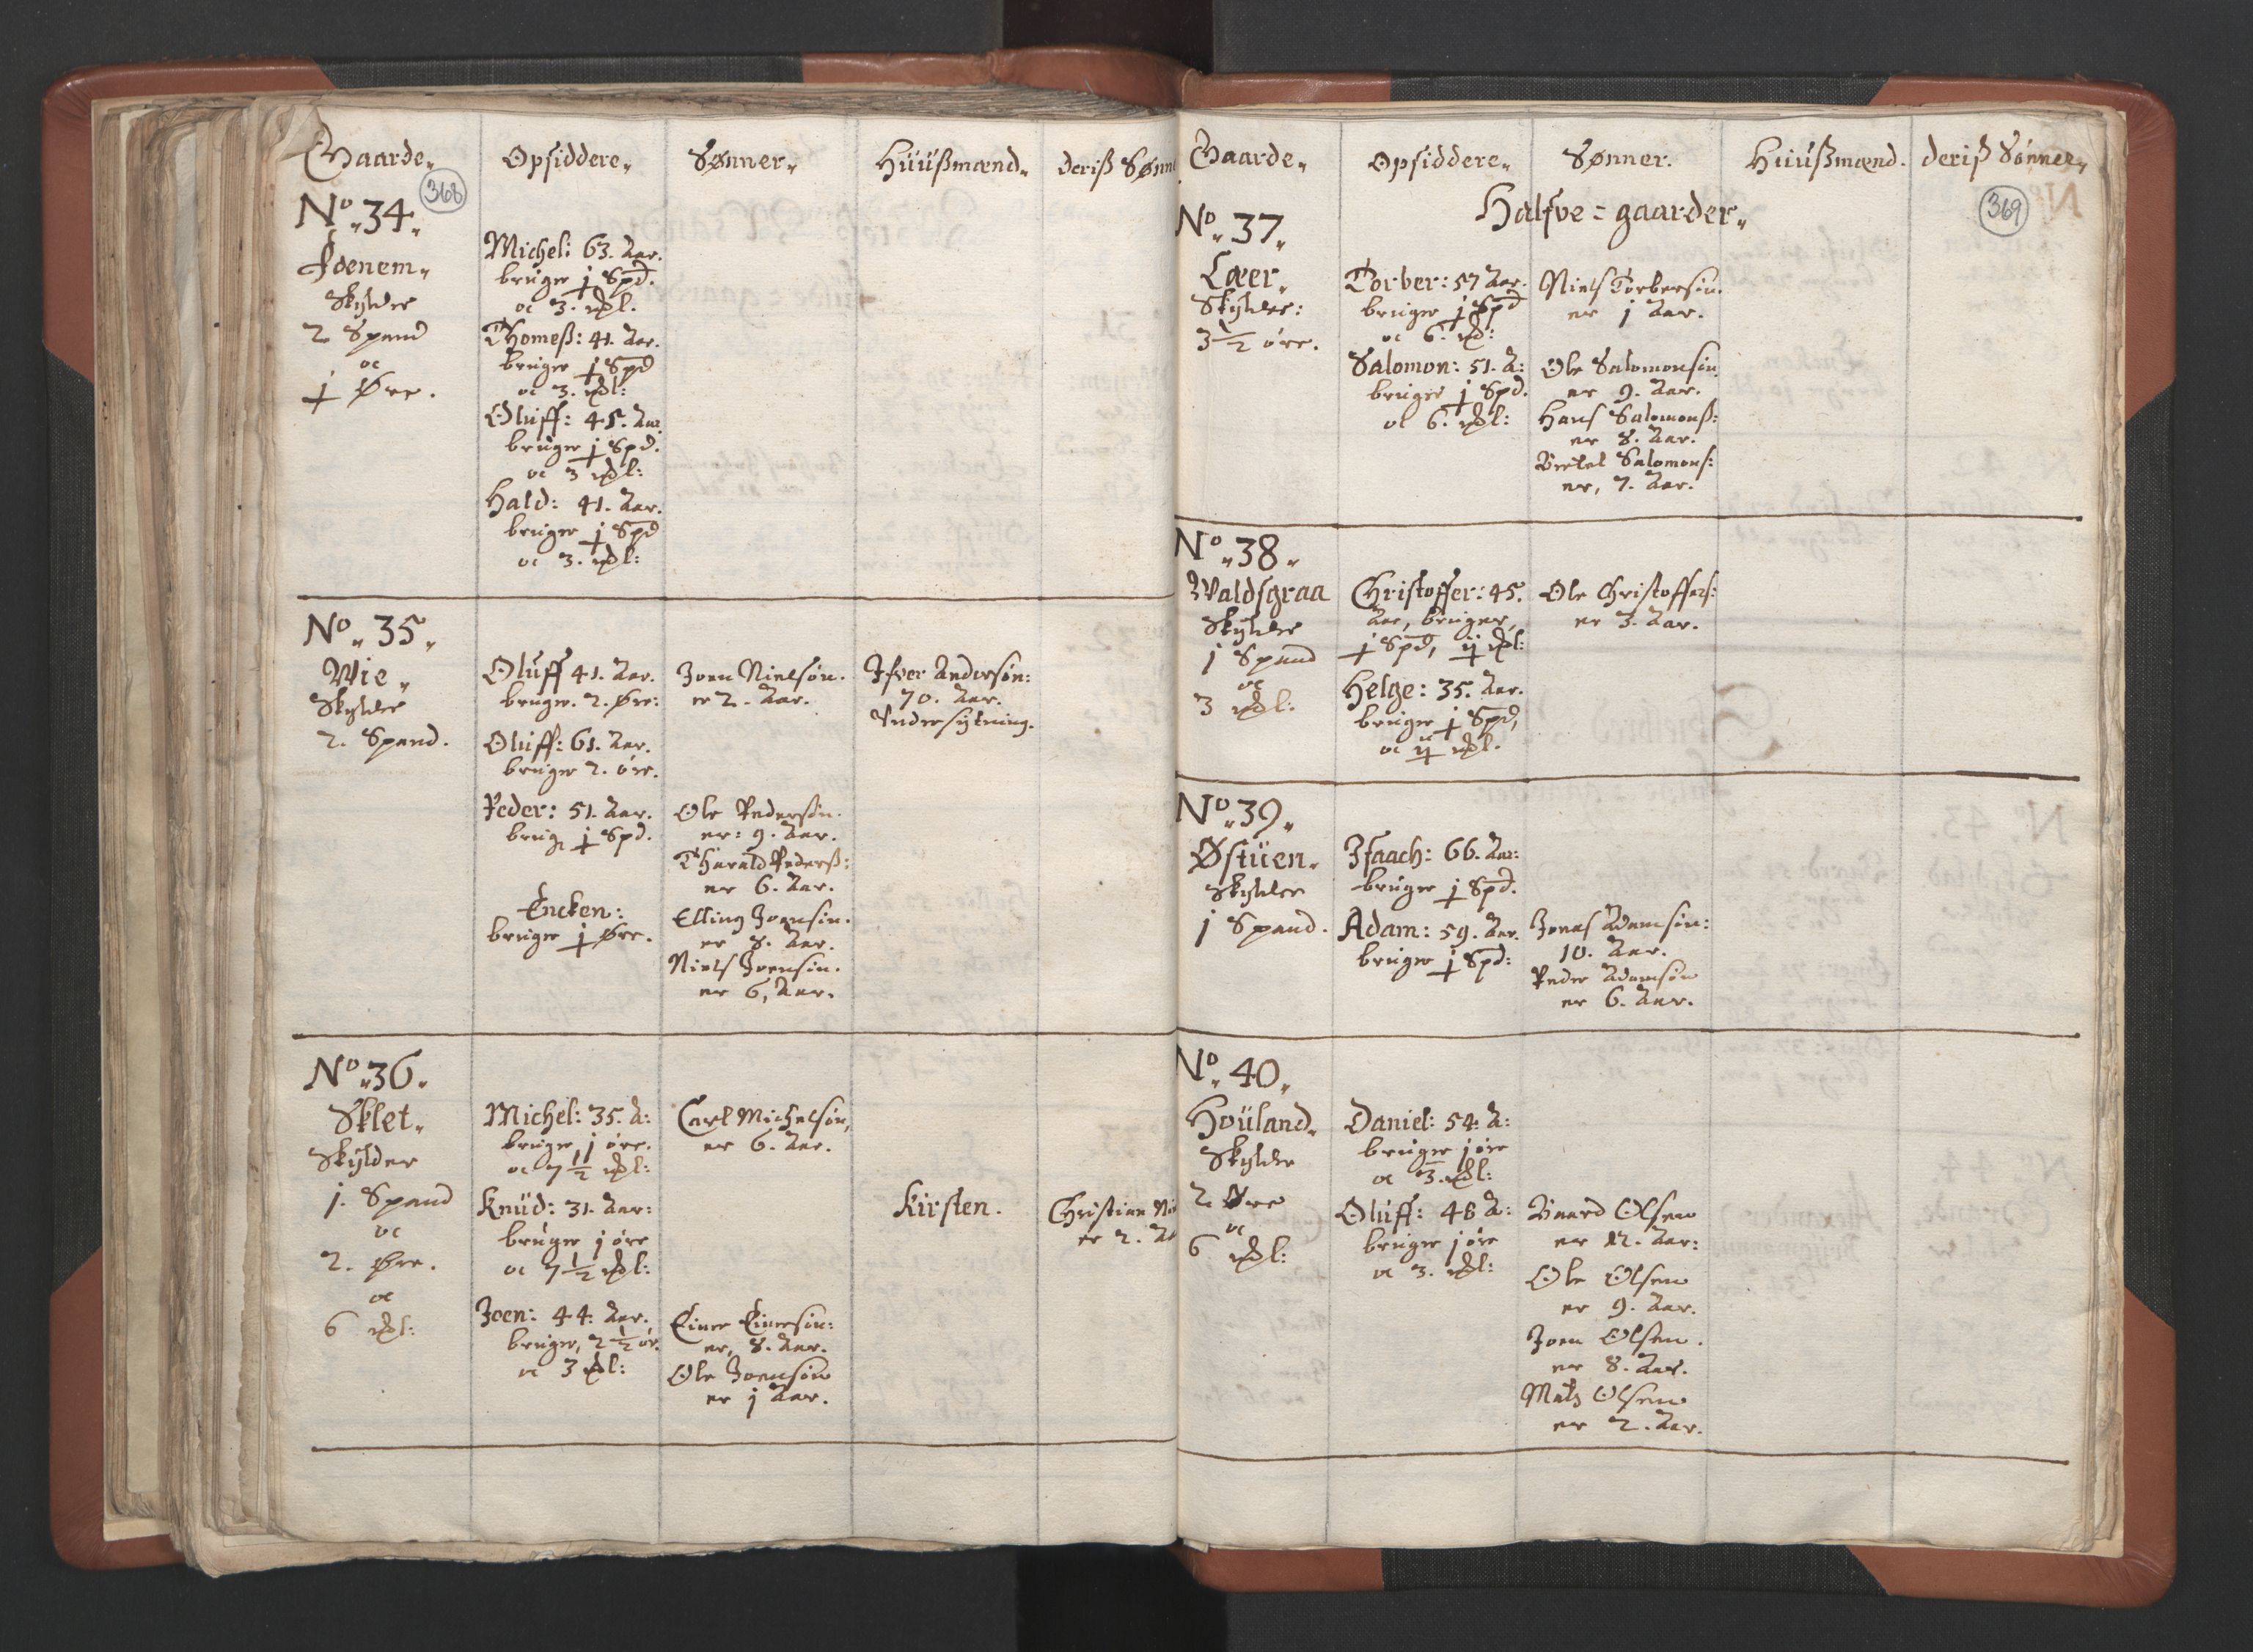 Gaarde. Opsiddere. Sønner. Huußmænd. deriß Sønn
368
No. 34.
Skylder
2 Spand
oc
j Øre.
Michel: 63. Aar.
bruger j Spd.
oc 3. mkl.
THomeß: 41. Aar.
bruger j Spd
oc 3. mkl:
Oluff: 45. Aar
bruger j Spd.
oc 3 mkl:
Hald: 41. Aar.
bruger j Spd
oc 3. mkl:
No. 35.
Wie.
Skylder
2. Spand.
Oluff 41. Aar.
bruger. 2. Øre:
Oluff: 61. Aar.
bruger 2. øre.
Peder: 51. Aar.
brug j Spd.
Encken:
bruger j Øre.
Joen Nielsøn.
er 2. Aar.
Ole Pedersøn.
er: 9. Aar.
THarald Pederß:
er 6. Aar.
Elling Joensøn.
er 8. Aar.
Niels Joensøn.
er 6, Aar.
Ifver Andersøn:
70. Aar.
Undersytning.
No. 36.
Sklet.
Skylder
j. Spand
oc
2. Øre.
oc
6 mkl:
Michel: 35. A:
bruger j øre.
oc 7½ mkl:
Knud: 31. Aar:
bruger j øre
oc 7½ mkl:
Joen: 44. Aar.
bruger, 2½ ør.
oc 3 mkl:
Carl Michelsøn,
er 6. Aar.
Einer Einersøn:
er, 8. Aar.
Ole Joensøn
er j Aar.
Kirsten.
Christian Ni
er 2. Aa
Gaarde. Opsiddere. Sønner. Huußmænd. deriß Sønner.
369
Halfve=gaarder.
No. 37.
Læer.
Skylder:
3½ øre.
Torber: 57 Aar.
bruger j Spd
oc 6. mkl:
Salomon: 51. A:
bruger j Spd.
oc 6. mkl:
Niels Torbersøn.
er j Aar.
Ole Salomonsøn
er 9. Aar.
Hans Salomonß:
er 8. Aar.
Bertel Salomons:
er, 7. Aar.
No. 38.
Waldsgraa
Skylder
j Spand
oc
3 mkl:
Christoffer: 45.
Aar, bruger,
j Spd, ij mkl:
Helge: 35. Aar.
bruger j Spd,
oc ij mkl.
Ole Christoffers:
er 3. Aar.
No. 39.
Østuen.
Skylder
j Spand.
Isaach: 66. Aar:
bruger j Spd.
Adam: 59. Aar.
bruger j Spd:
Jonas Adamsøn:
10. Aar.
Peder Adamsøn
er 6. Aar.
No. 40.
Houland.
Skylder
2. Øre
oc
6 mkl:
Daniel: 54. A:
bruger j øre
oc 3. mkl:
Oluff: 46 A:
bruger j øre
oc 3. mkl:
Baard Olsen
er 12. Aar:
Ole Olsen
er 9. Aar.
Joen Olsen.
er 8. Aar.
Mats Olsen
er 2. Aar.